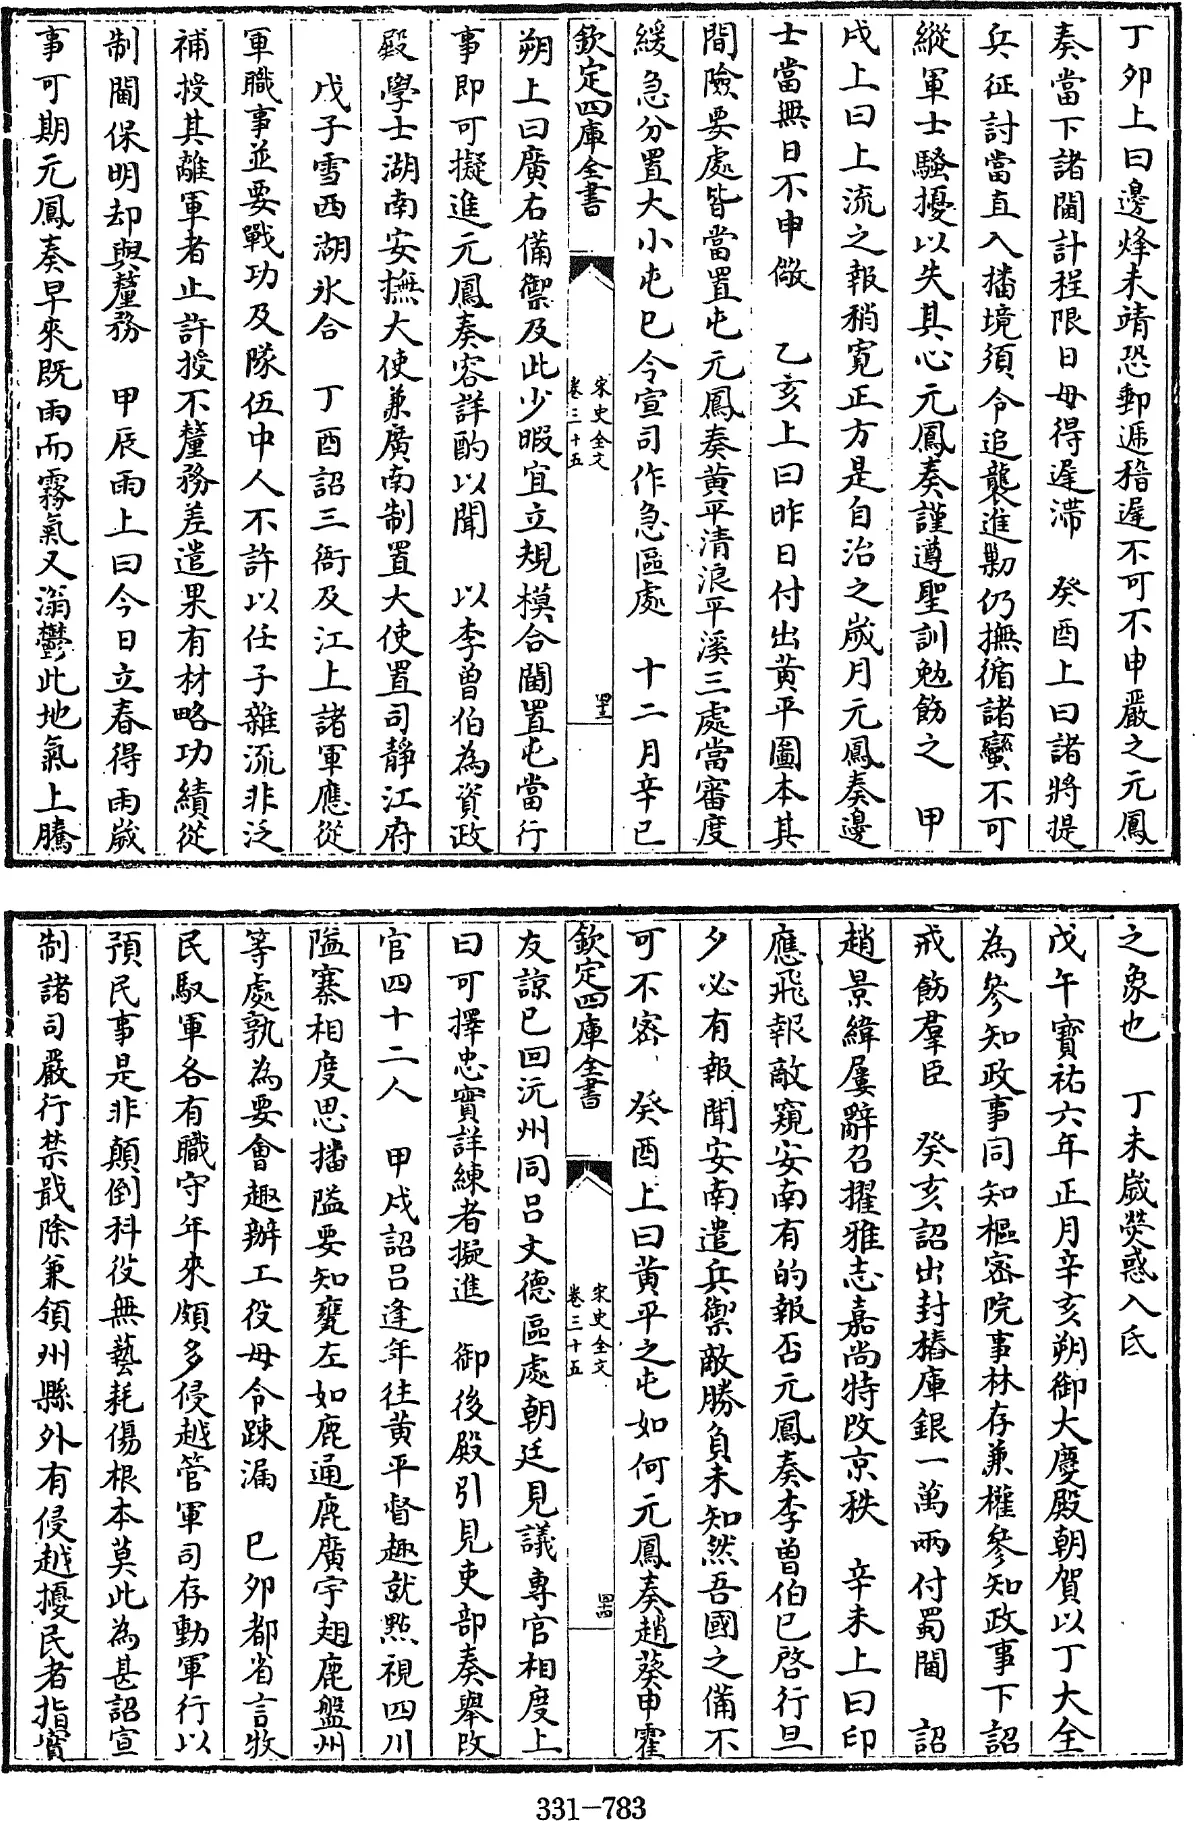 丁卯上曰邊烽未靖恐郵遞稽遲不可不申嚴之元鳳
奏當下諸閫計程限日毋得遲滯　癸酉上曰諸將提
兵征討當直入播境須令追襲進勦仍撫循諸蠻不可
縱軍士騷擾以失其心元鳳奏謹遵聖訓勉飭之　甲
戌上曰上流之報稍寛正方是自治之歲月元鳳奏邊
士當無日不申儆　乙亥上曰昨日付出黄平圖本其
間險要處皆當置屯元鳳奏黄平清浪平溪三處當審度
緩急分置大小屯已令宣司作急區處　十二月辛已
欽定四庫全書
宋史全文
卷三十五
四十三
朔上曰廣右備禦及此少暇宜立規模合閫置屯當行
事即可擬進元鳳奏容詳酌以聞　以李曾伯為資政
殿學士湖南安撫大使兼廣南制置大使置司靜江府
戊子雪西湖氷合　丁酉詔三衙及江上諸軍應從
軍職事並要戰功及隊伍中人不許以任子雜流非泛
補授其離軍者止許授不釐務差遣果有材略功績從
制閫保明却與釐務　甲辰雨上曰今日立春得雨歲
事可期元鳳奏早來既雨而霧氣又滃鬱此地氣上騰
之象也　丁未歲熒惑入氐
戊午寳祐六年正月辛亥朔御大慶殿朝賀以丁大全
為參知政事同知樞密院事林存兼權參知政事下詔
戒飭羣臣　癸亥詔出封樁庫銀一萬兩付蜀閫　詔
趙景緯屢辭召擢雅志嘉尚特改京秩　辛未上曰印
應飛報敵窺安南有的報否元鳳奏李曾伯已啓行旦
夕必有報聞安南遣兵禦敵勝負未知然吾國之備不
可不密　癸酉上曰黄平之屯如何元鳳奏趙葵申霍
欽定四庫全書
宋史全文
卷三十五
四十四
友諒已回沅州同呂文德區處朝廷見議專官相度上
曰可擇忠實詳練者擬進　御後殿引見吏部奏舉改
官四十二人　甲戌詔呂逢年往黄平督趣就㸃視四川
隘寨相度思播隘要知甕左如鹿通鹿廣宇翅鹿盤州
等處孰為要會趣辦工役毋令踈漏　已卯都省言牧
民馭軍各有職守年來頗多侵越管軍司存動軍行以
預民事是非顛倒科役無藝耗傷根本莫此為甚詔宣
制諸司嚴行禁戢除兼領州縣外有侵越擾民者指實
331—783